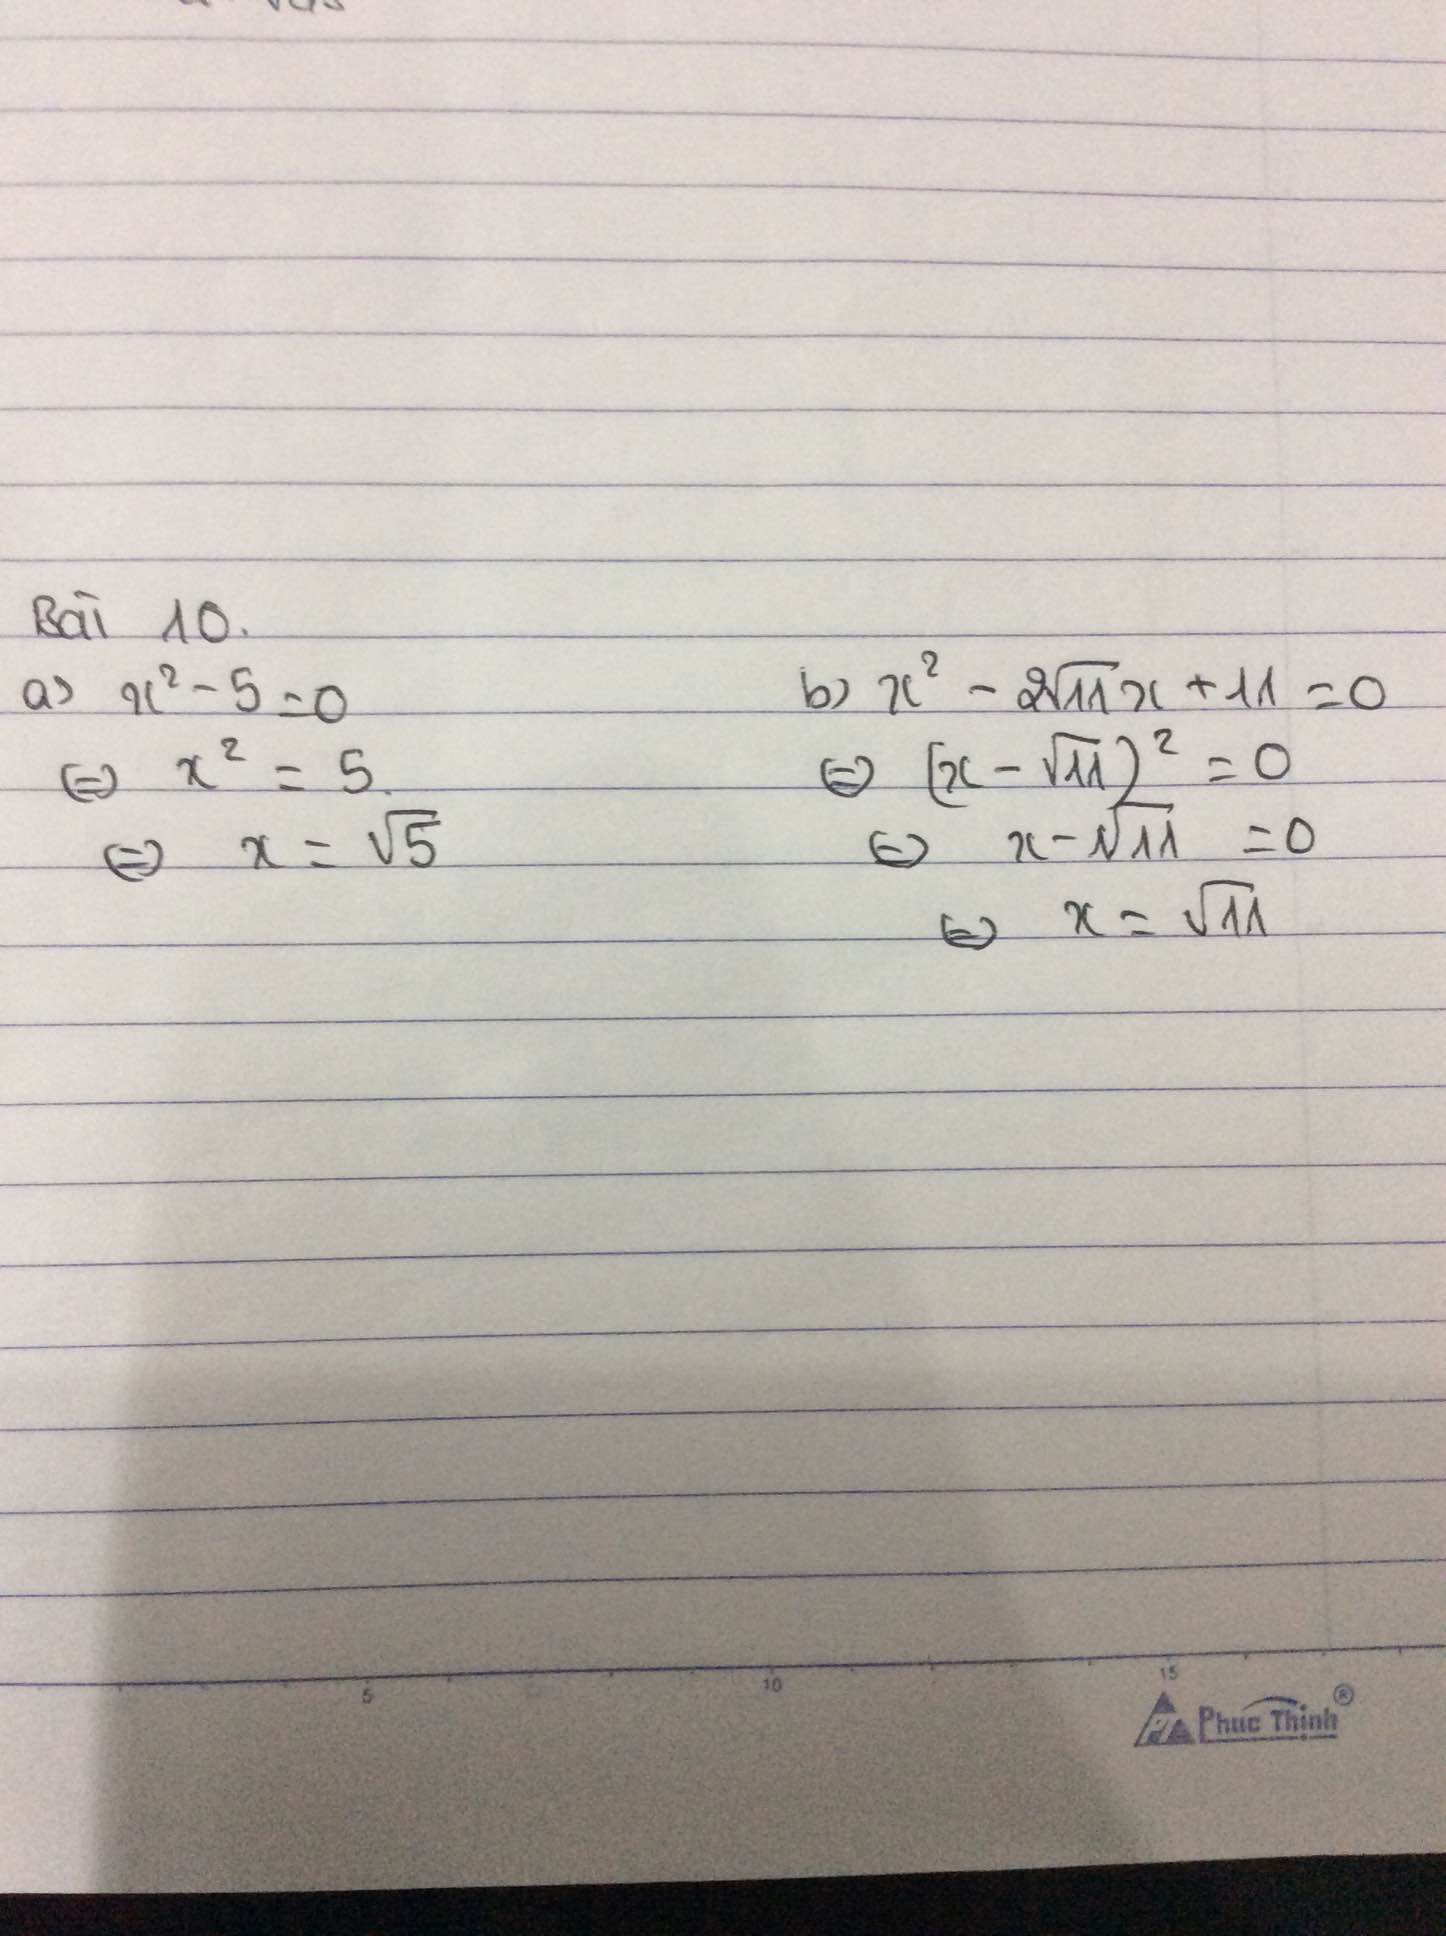 Bài 10.
a) x² - 5 = 0
⇔ x² = 5.
⇔ x = √5
b) x² - 2√11x + 11 = 0
⇔ (x - √11)² = 0
⇔ x - √11 = 0
⇔ x = √11
5 10 15
Phuc Thịnh®